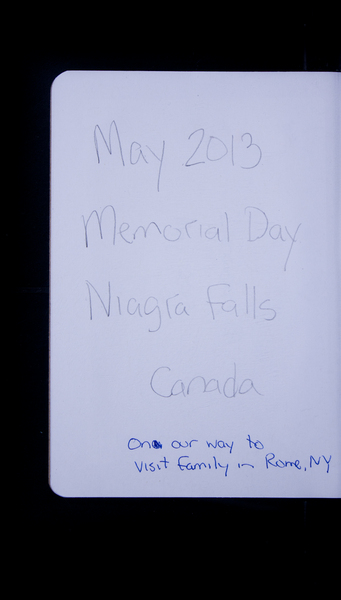 May 2013
Memorial Day
Niagra Falls
Canada
On our way to
visit family in Rome, NY